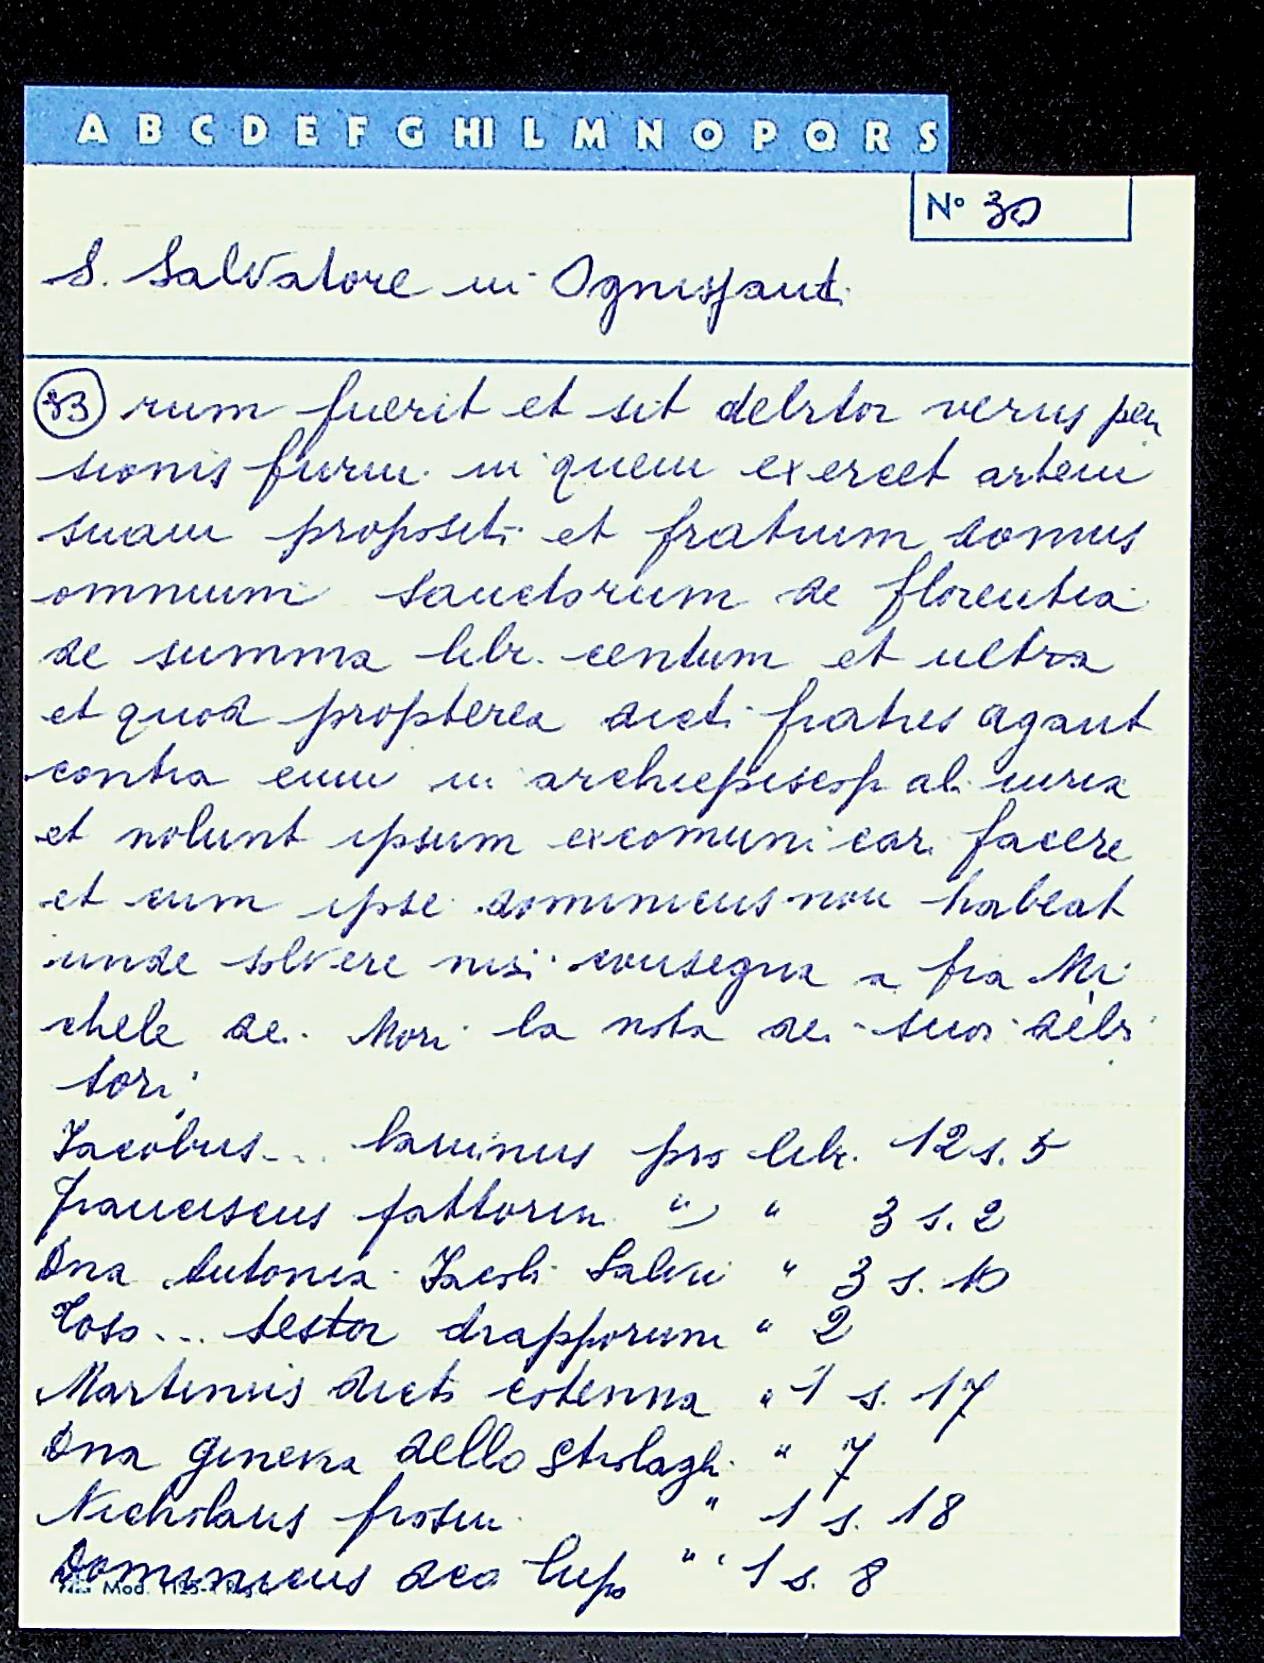 A B C D E F G HI L M N O P Q R S
N° 30
S. Salvatore in Ognissanti
33 rum fuerit et sit debitor verus pen
sionis furni in quem exercet artem
suam propositi et fratrum domus
omnium sanctorum de florentia
de summa libr. centum et ultra
et quod propterea dicti fratres agant
contra eum in archiepiscopali curia
et nolunt ipsum excomunicari facere
et cum ipse dominicus non habeat
unde solvere nisi consegna a fra Mi
chele de Mori la nota dei suoi debi
tori;
Jacobus... laninus pro libr. 12 s. 5
franciscus fattorin " " 3 s. 2
Dna Antonia Jacobi Salvi " 3 s. 10
Toso... testor drapporum " 2
Martinus dicto cotenna " 1 s. 17
Dna ginevra dello Strolagh " 7
Nicholaus frosin " 1 s. 18
Dominicus dco lupo " 1 s. 8